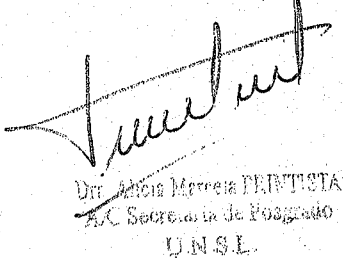 Dra. Alicia Marcela PRINTISTA
A/C Secretaría de Posgrado
U.N.S.L.